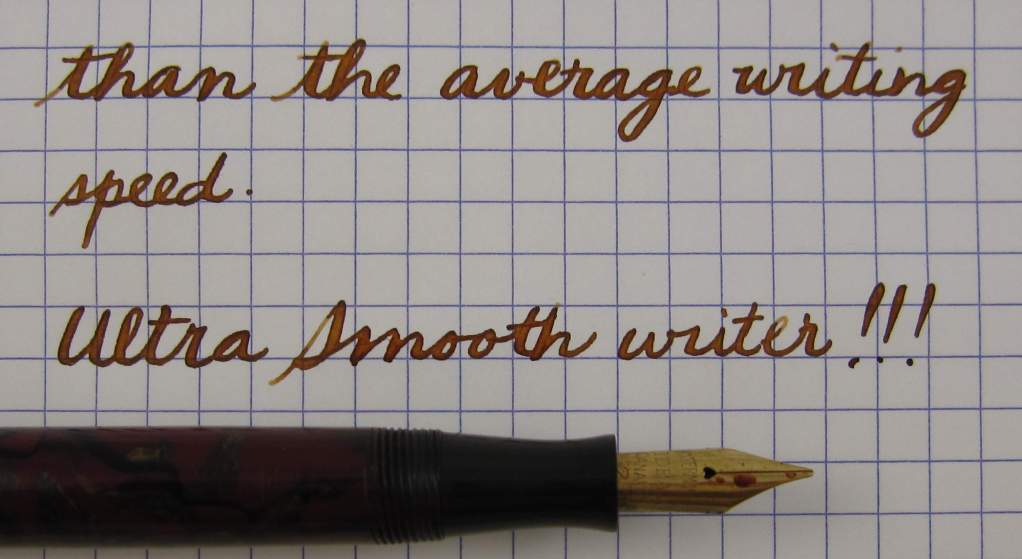 than the average writing
speed.
Ultra Smooth writer!!!